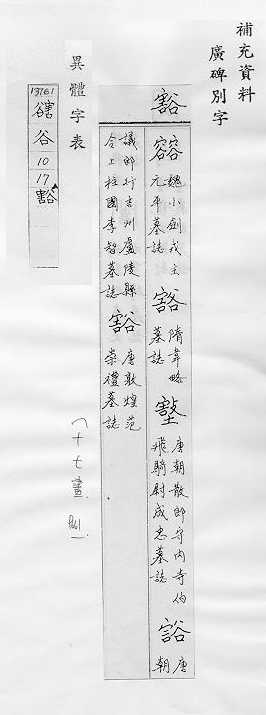 補充資料
廣碑別字
豁
魏小劍戎主
元平墓誌
豁
隋韋略
墓誌
唐朝散郎守內寺伯
飛騎尉成忠墓誌
唐
朝
議郎行吉州盧陵縣
令上柱國李智墓誌
豁
唐敦煌范
崇禮墓誌
十七畫
異體字表
13761
谷
10
17
豁